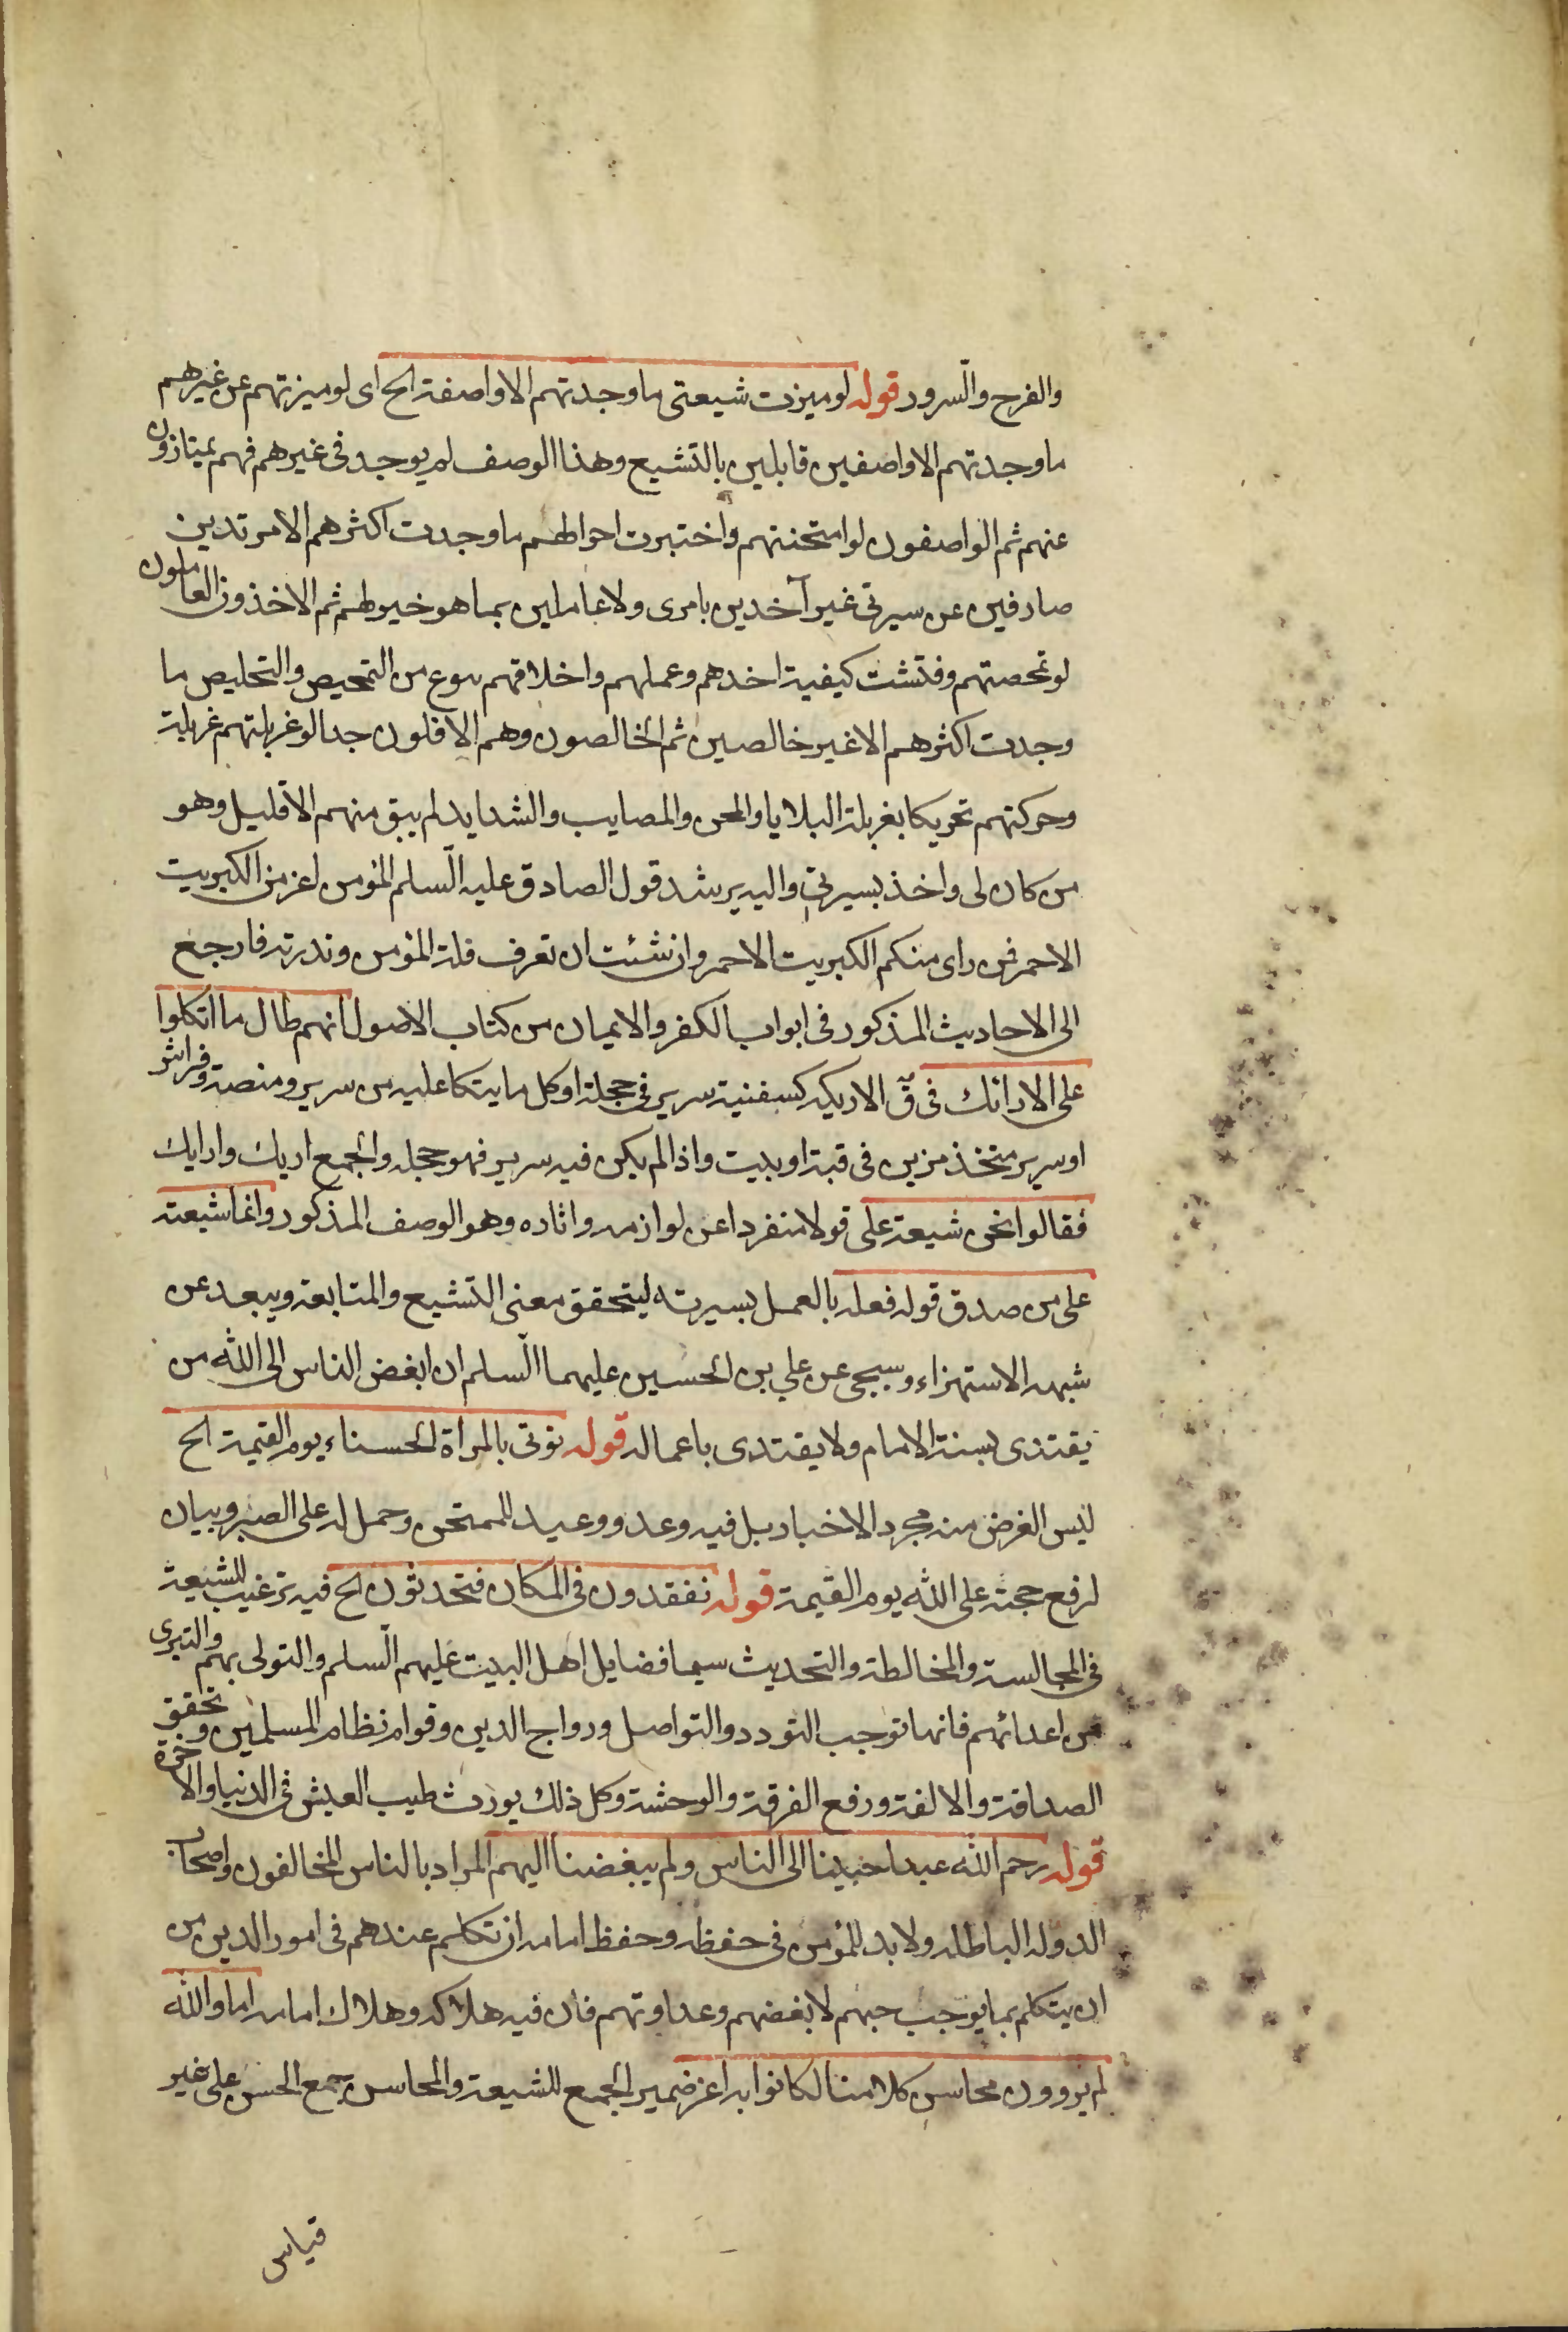 والفرح والسّرور قوله لو ميزت شيعتى ما وجدتهم الا واصفة الخ اى لو ميزتهم عن غيرهم
ما وجدتهم الا واصفين قابلين بالتشيع وهذا الوصف لم يوجد فى غيرهم فهم يمتازون
عنهم ثم الواصفون لو امتحنتهم واختبرت احوالهم ما وجدت اكثرهم الا مرتدين
صارفين عن سيرتى غير آخدين بامرى ولا عاملين بما هو خير لهم ثم الاخذون العاملون
لو تمحصتهم وفتشت كيفية اخدهم وعملهم واخلاقهم بنوع من التمحيص والتخليص ما
وجدت اكثرهم الا غير خالصين ثم الخالصون وهم الاقلون جدا لو غربلتهم غربلة
وحركتهم تحريكا بغربلة البلايا والمحن والمصايب والشدايد لم يبق منهم الا قليل وهو
من كان لى واخذ بسيرتى واليه يرشد قول الصادق عليه السّلم المؤمن اعز من الكبريت
الاحمر فمن راى منكم الكبريت الاحمر وان شئت ان تعرف قلة المؤمن وندرته فارجع
الى الاحاديث المذكور فى ابواب الكفر والايمان من كتاب الاصول انهم طال ما اتكلوا
على الارائك فى ق الاريكة كسفنية سرير فى حجلة او كل ما يتكا عليه من سرير ومنصة وفراش
او سرير متخذ مزين فى قبة او بيت واذا لم يكن فيه سرير فهو حجلة والجمع اريك وارايك
فقالوا نحن شيعة على قولا منفردا عن لوازمه واثاره وهو الوصف المذكور وانما شيعة
على من صدق قوله فعله بالعمل بسيرته ليتحقق معنى التشيع والمتابعة ويبعد عن
شبهه الاستهزاء وسيجى عن علي بن الحسين عليهما السّلم ان ابغض الناس الى الله من
يقتدى بسنة الامام ولا يقتدى باعماله قوله نوتى بالمراة الحسناء يوم القيمة الخ
ليس الغرض منه مجرد الاخبار بل فيه وعد ووعيد للممتحن وحمل له على الصبر وبيان
لرفع حجته على الله يوم القيمة قوله نفقدون فى المكان فتحدثون الخ فيه ترغيب للشيعة
فى المجالسة والمخالطة والتحديث سيما فضايل اهل البيت عليهم السّلم والتولى بهم والتبرى
عن اعدائهم فانها توجب التودد والتواصل ورواج الدين وقوام نظام المسلمين وتحقق
الصداقة والالفة ورفع الفرقة والوحشة وكل ذلك يورث طيب العيش فى الدنيا والاخرة
قوله رحم الله عبدا حببنا الى الناس ولم يبغضنا اليهم المراد بالناس المخالفون واصحاب
الدولة الباطلة ولابد للمؤمن فى حفظه وحفظ امامه ان تكلم عندهم فى امور الدين من
ان يتكلم بما يوجب حبهم لا بغضهم وعداوتهم فان فيه هلاكه وهلاك امامه اما والله
لم يروون محاسن كلامنا لكانوا به اعز ضمير الجمع للشيعة والمحاسن جمع الحسن على غير
قياس